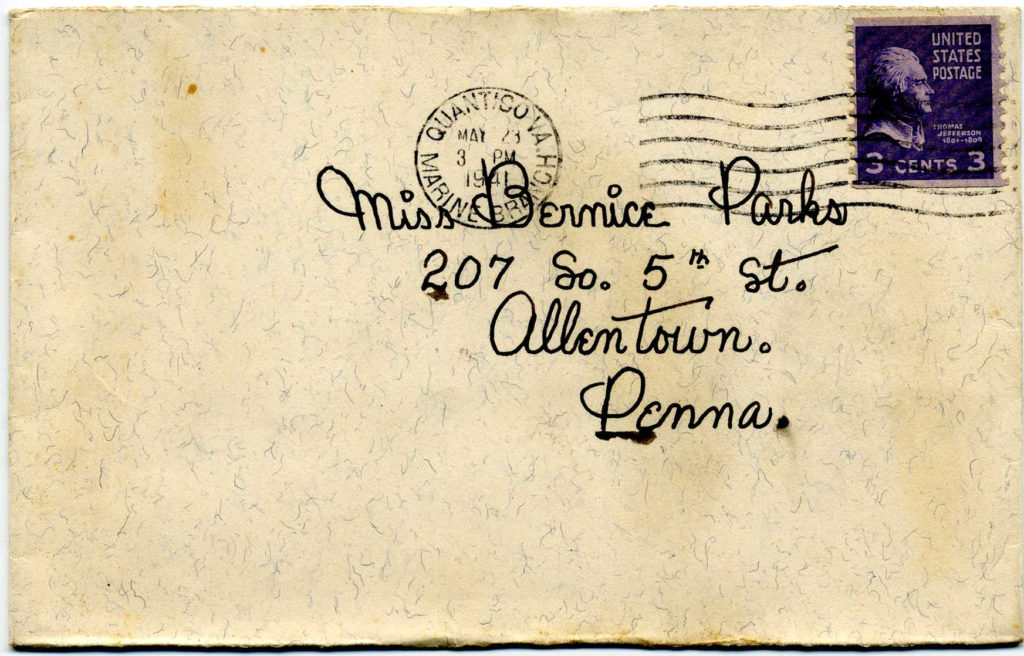 UNITED
STATES
POSTAGE
THOMAS
JEFFERSON
1801-1809
3 CENTS 3
QUANTICO VA
MAY 23
3 PM
1941
MARINE BRANCH
Miss Bernice Parks
207 So. 5th St.
Allentown.
Penna.